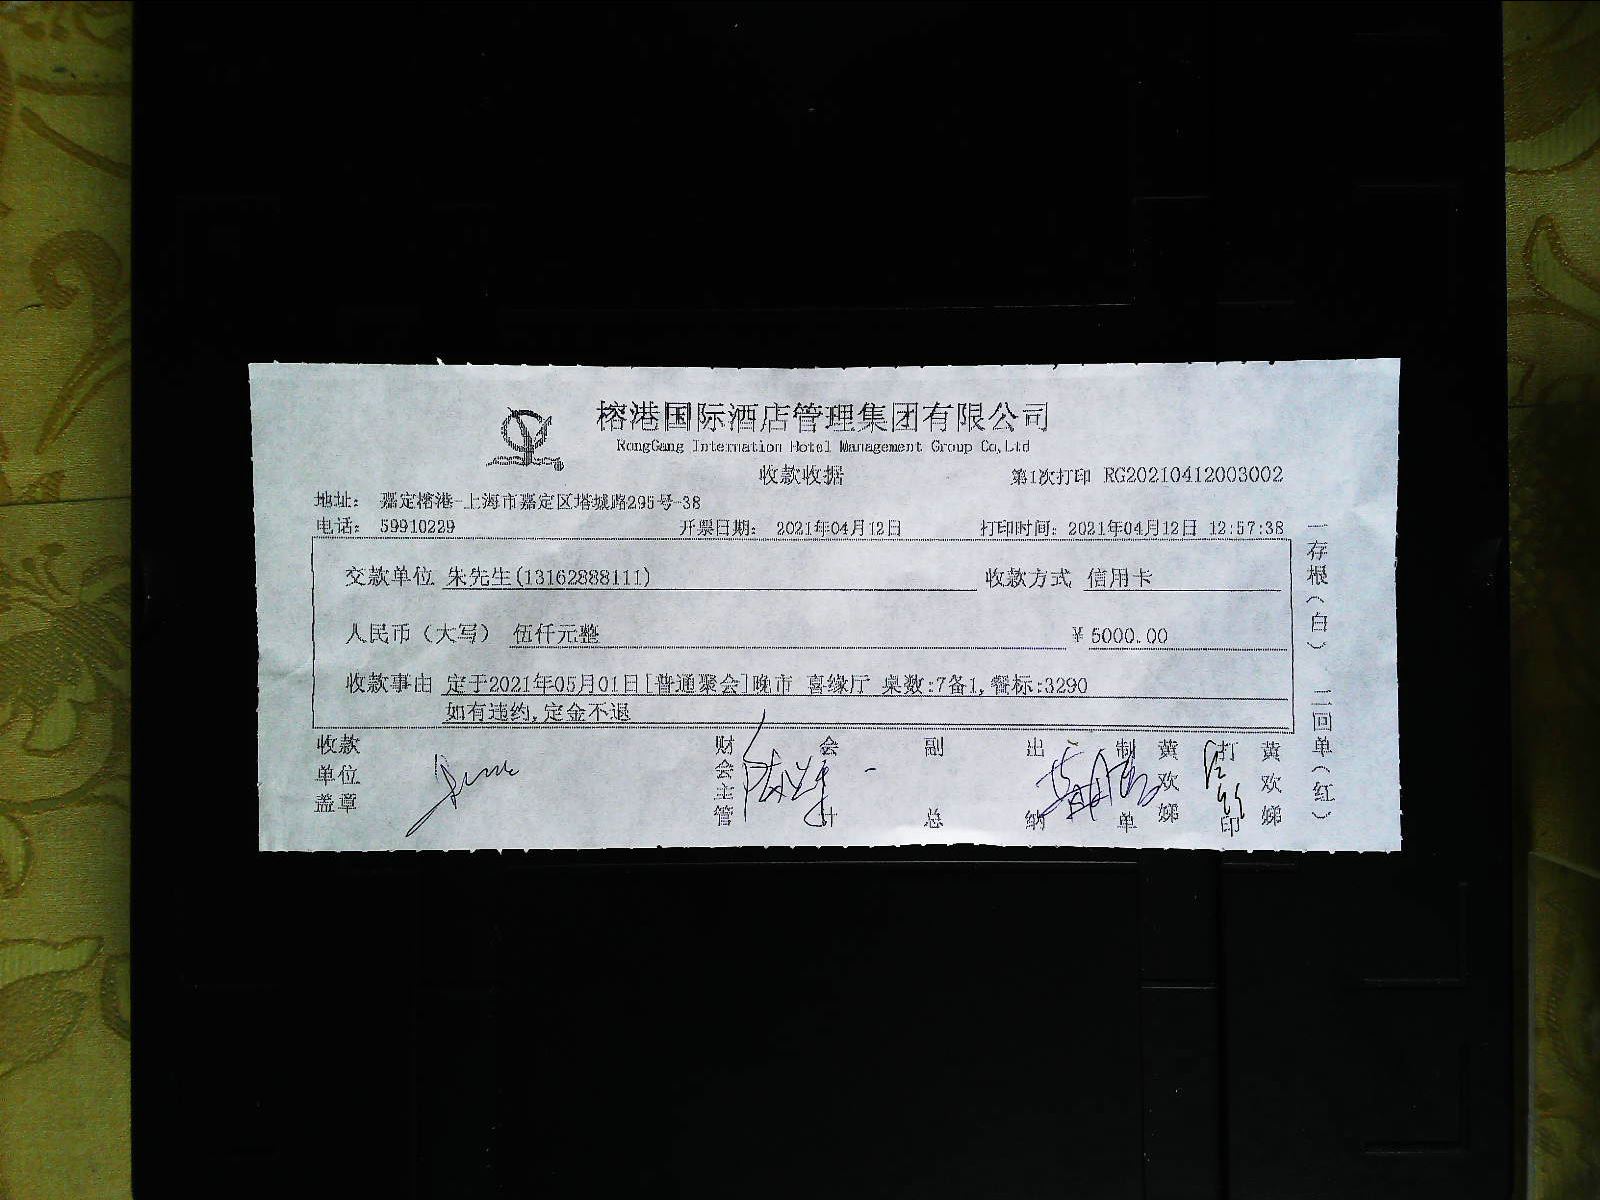 榕港国际酒店管理集团有限公司
RongGang Internation Hotel Management Group Co,Ltd
收款收据
第1次打印 RG20210412003002
地址： 嘉定榕港-上海市嘉定区塔城路295号-38
电话： 59910229 开票日期： 2021年04月12日 打印时间：2021年04月12日 12:57:38
交款单位 朱先生(13162888111) 收款方式 信用卡
人民币（大写） 伍仟元整 ￥5000.00
收款事由 定于2021年05月01日[普通聚会]晚市 喜缘厅 桌数:7备1,餐标:3290
如有违约,定金不退
收款单位盖章
财会主管
会计
副总
出纳
制单
黄欢娣
打印
黄欢娣
一存根（白） 二回单（红）